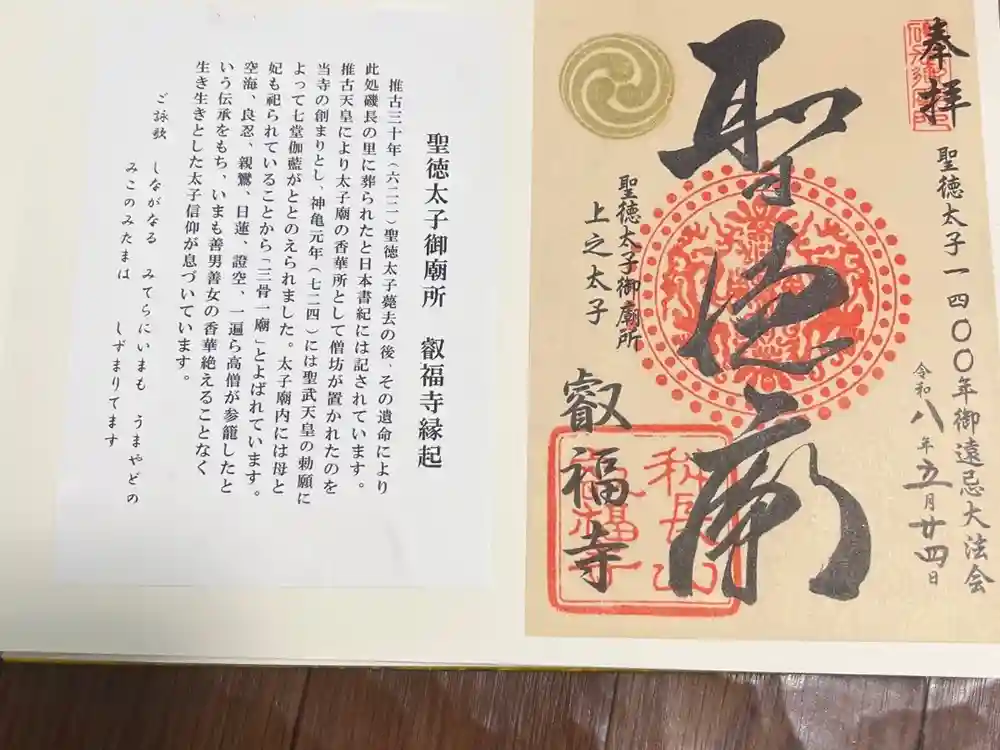 奉拝
聖徳太子一四〇〇年御遠忌大法会
令和八年五月廿四日
聖徳廟
聖徳太子御廟所
上之太子
叡福寺
聖徳太子御廟所　叡福寺縁起
推古三十年（六二二）聖徳太子薨去の後、その遺命により
此処磯長の里に葬られたと日本書紀には記されています。
推古天皇により太子廟の香華所として僧坊が置かれたのを
当寺の創まりとし、神亀元年（七二四）には聖武天皇の勅願に
よって七堂伽藍がととのえられました。太子廟内には母と
妃も祀られていることから「三骨一廟」とよばれています。
空海、良忍、親鸞、日蓮、證空、一遍ら高僧が参籠したと
いう伝承をもち、いまも善男善女の香華絶えることなく
生き生きとした太子信仰が息づいています。
ご詠歌　しながなる　みてらにいまも　うまやどの
みこのみたまは　しずまりてます